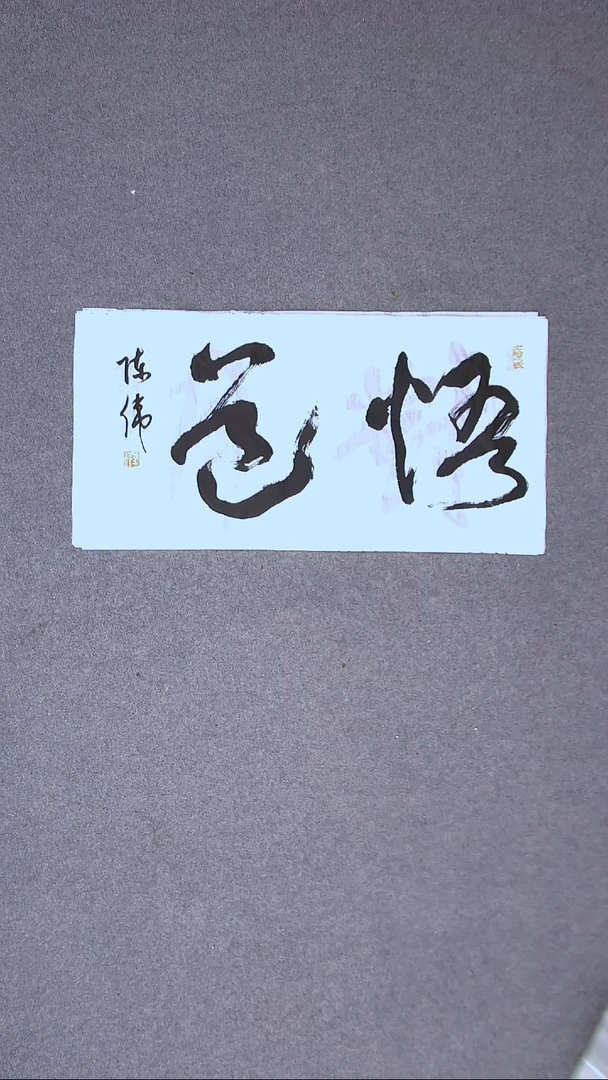 悟道
陈伟